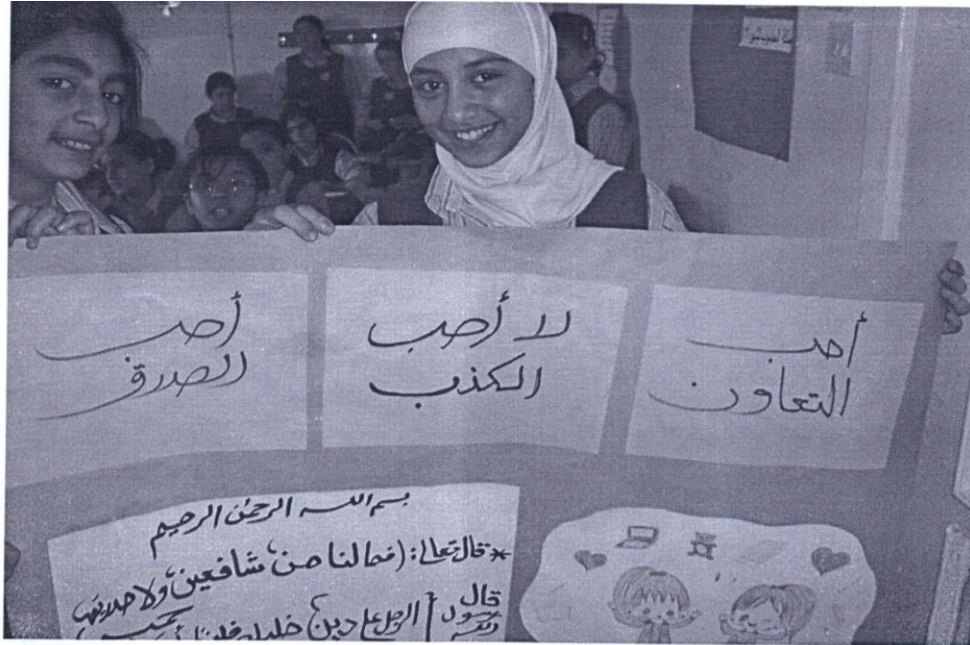 أحب
التعاون
لا أحب
الكذب
أحب
الصدق
بسم الله الرحمن الرحيم
* قال تعالى: (فما لنا من شافعين ولا صديق
قال
رسول الرجل على دين خليله